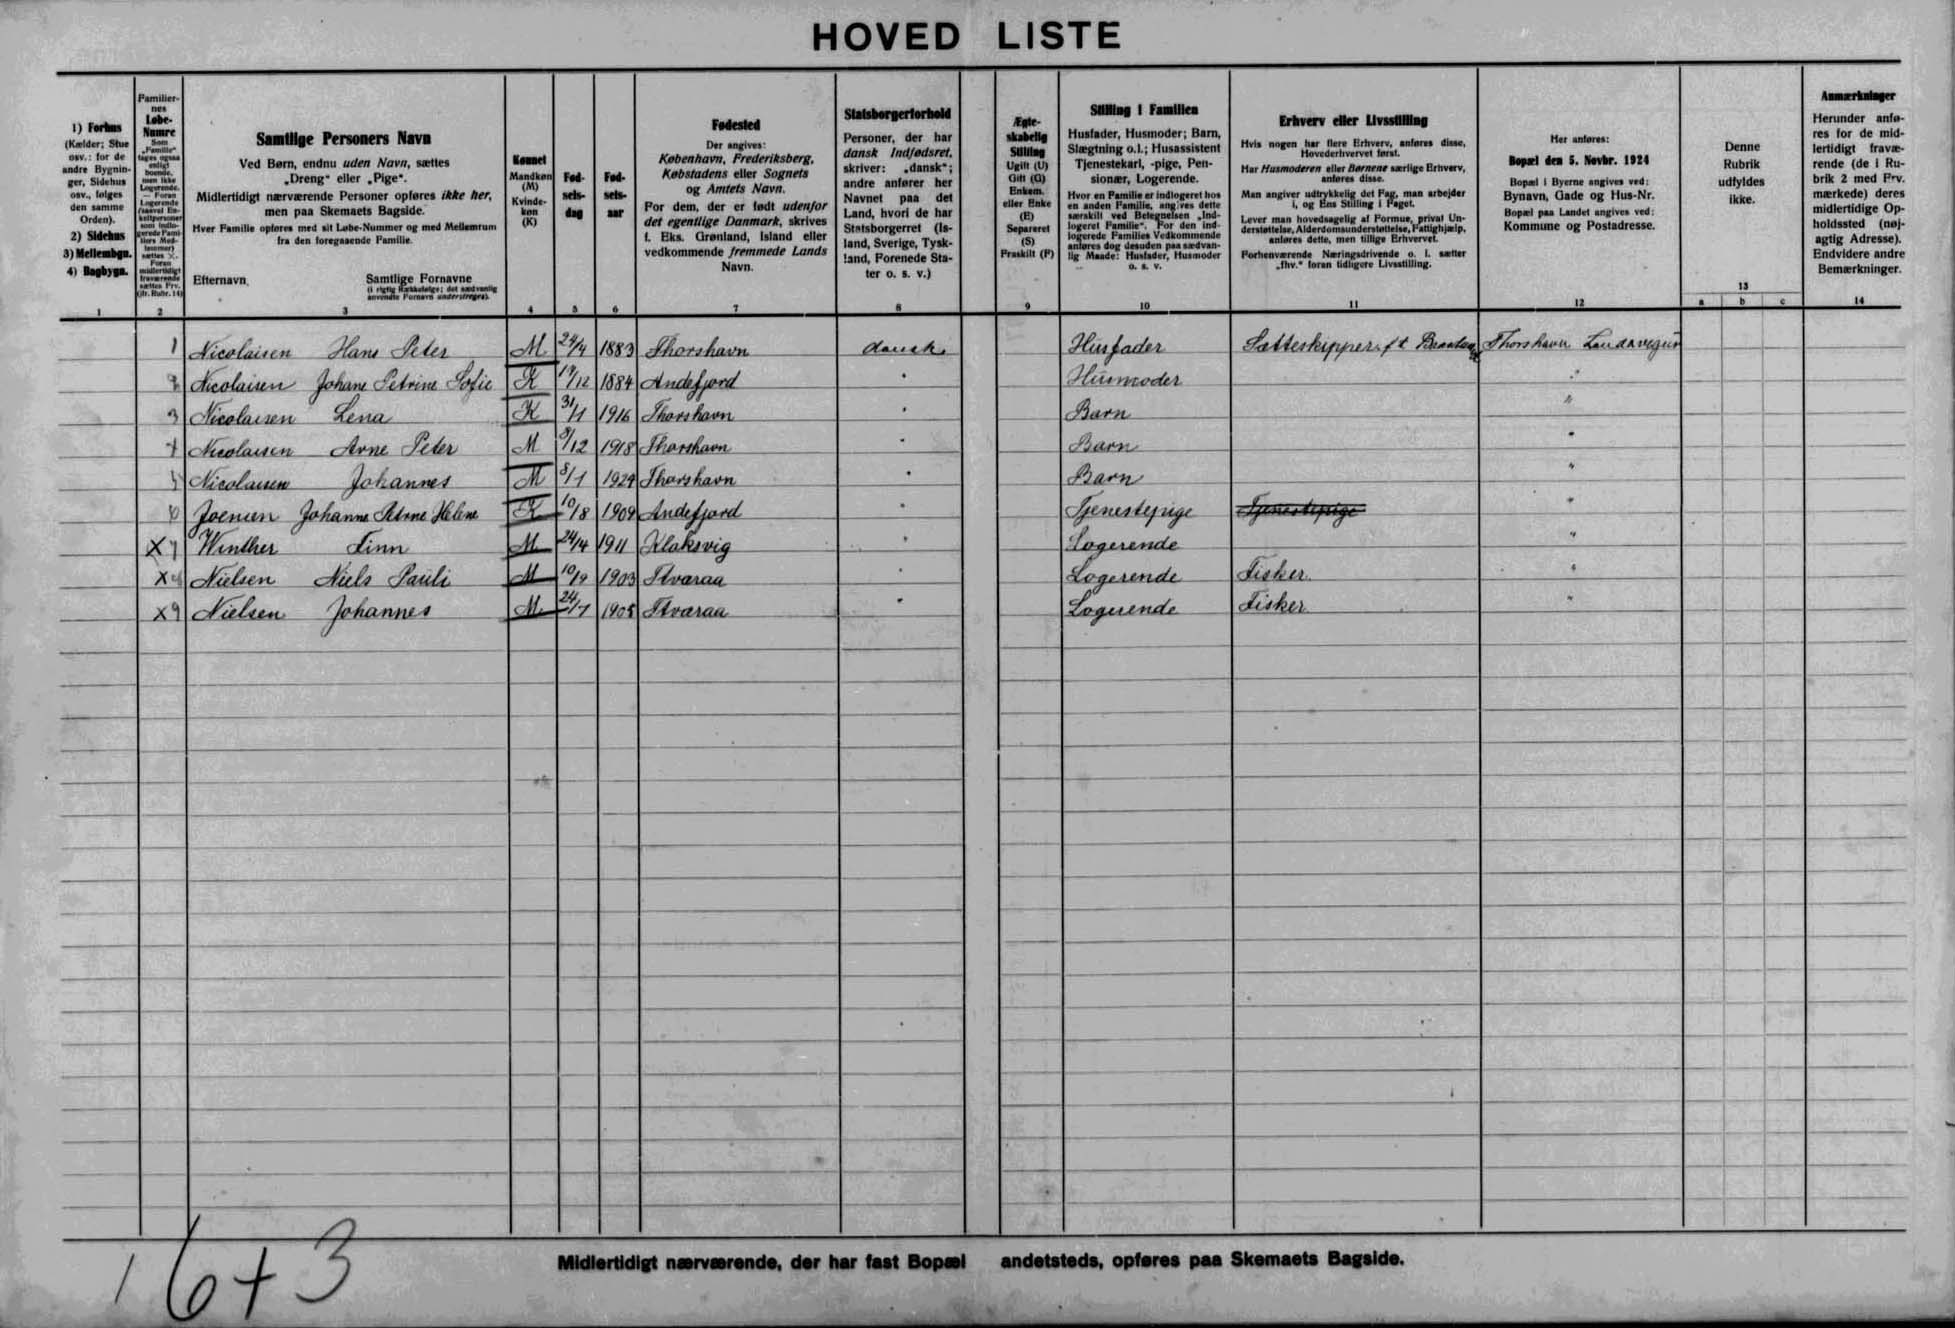 HOVED LISTE
1) Forhus
(Kælder; Stue
osv.: for de
andre Bygnin-
ger, Sidehus
osv., følges
den samme
Orden).
2) Sidehus
3) Mellembgn.
4) Bagbygn.
1
Familier-
nes
Løbe-
Numre
Som
„Familie“
tages ogsaa
enligt
boende,
men ikke
Logerende.
— Foran
Logerende
(saavel En-
keltpersoner
som indlo-
gerede Fami-
liers Med-
lemmer)
sættes X.
Foran
midlertidigt
fraværende
sættes Frv.
(jfr. Rubr. 14)
2
Samtlige Personers Navn
Ved Børn, endnu uden Navn, sættes
„Dreng“ eller „Pige“.
Midlertidigt nærværende Personer opføres ikke her,
men paa Skemaets Bagside.
Hver Familie opføres med sit Løbe-Nummer og med Mellemrum
fra den foregaaende Familie.
Efternavn, Samtlige Fornavne
(i rigtig Rækkefølge; det sædvanlig
anvendte Fornavn understreges).
3
Kønnet
Mandkøn
(M)
Kvinde-
køn
(K)
4
Fød-
sels-
dag
5
Fød-
sels-
aar
6
Fødested
Der angives:
København, Frederiksberg,
Købstadens eller Sognets
og Amtets Navn.
For dem, der er født udenfor
det egentlige Danmark, skrives
f. Eks. Grønland, Island eller
vedkommende fremmede Lands
Navn.
7
Statsborgerforhold
Personer, der har
dansk Indfødsret,
skriver: „dansk“;
andre anfører her
Navnet paa det
Land, hvori de har
Statsborgerret (Is-
land, Sverige, Tysk-
land, Forenede Sta-
ter o. s. v.)
8
Ægte-
skabelig
Stilling
Ugift (U)
Gift (G)
Enkem.
eller Enke
(E)
Separeret
(S)
Fraskilt (F)
9
Stilling i Familien
Husfader, Husmoder; Barn,
Slægtning o.l.; Husassistent
Tjenestekarl, -pige, Pen-
sionær, Logerende.
Hvor en Familie er indlogeret hos
en anden Familie, angives dette
særskilt ved Betegnelsen „Ind-
logeret Familie“. For den ind-
logerede Families Vedkommende
anføres dog desuden paa sædvan-
lig Maade: Husfader, Husmoder
o. s. v.
10
Erhverv eller Livsstilling
Hvis nogen har flere Erhverv, anføres disse,
Hovederhvervet først.
Har Husmoderen eller Børnene særlige Erhverv,
anføres disse.
Man angiver udtrykkelig det Fag, man arbejder
i, og Ens Stilling i Faget.
Lever man hovedsagelig af Formue, privat Un-
derstøttelse, Alderdomsunderstøttelse, Fattighjælp,
anføres dette, men tillige Erhvervet.
Forhenværende Næringsdrivende o. l. sætter
„fhv.“ foran tidligere Livsstilling.
11
Her anføres:
Bopæl den 5. Novbr. 1924
Bopæl i Byerne angives ved:
Bynavn, Gade og Hus-Nr.
Bopæl paa Landet angives ved:
Kommune og Postadresse.
12
Denne
Rubrik
udfyldes
ikke.
13
a b c
Anmærkninger
Herunder anfø-
res for de mid-
lertidigt fravæ-
rende (de i Ru-
brik 2 med Frv.
mærkede) deres
midlertidige Op-
holdssted (nøj-
agtig Adresse).
Endvidere andre
Bemærkninger.
14
1 Nicolaisen Hans Peter M 24/4 1883 Thorshavn dansk Husfader Sætteskipper Thorshavn Landavegur
2 Nicolaisen Johane Petrine Sofie K 19/12 1884 Andefjord " Husmoder "
3 Nicolaisen Lena K 31/1 1916 Thorshavn " Barn "
4 Nicolaisen Arne Peter M 8/12 1918 Thorshavn " Barn "
5 Nicolaisen Johannes M 8/1 1924 Thorshavn " Barn "
6 Joensen Johanne Petrne Helene K 10/8 1909 Andefjord " Tjenestepige Tjenestepige "
X 7 Winther Finn M 24/4 1911 Klaksvig " Logerende "
X 8 Nielsen Niels Pauli M 10/9 1903 Tværaa " Logerende Fisker "
X 9 Nielsen Johannes M 24/7 1905 Tværaa " Logerende Fisker "
Midlertidigt nærværende, der har fast Bopæl andetsteds, opføres paa Skemaets Bagside.
1 6+3